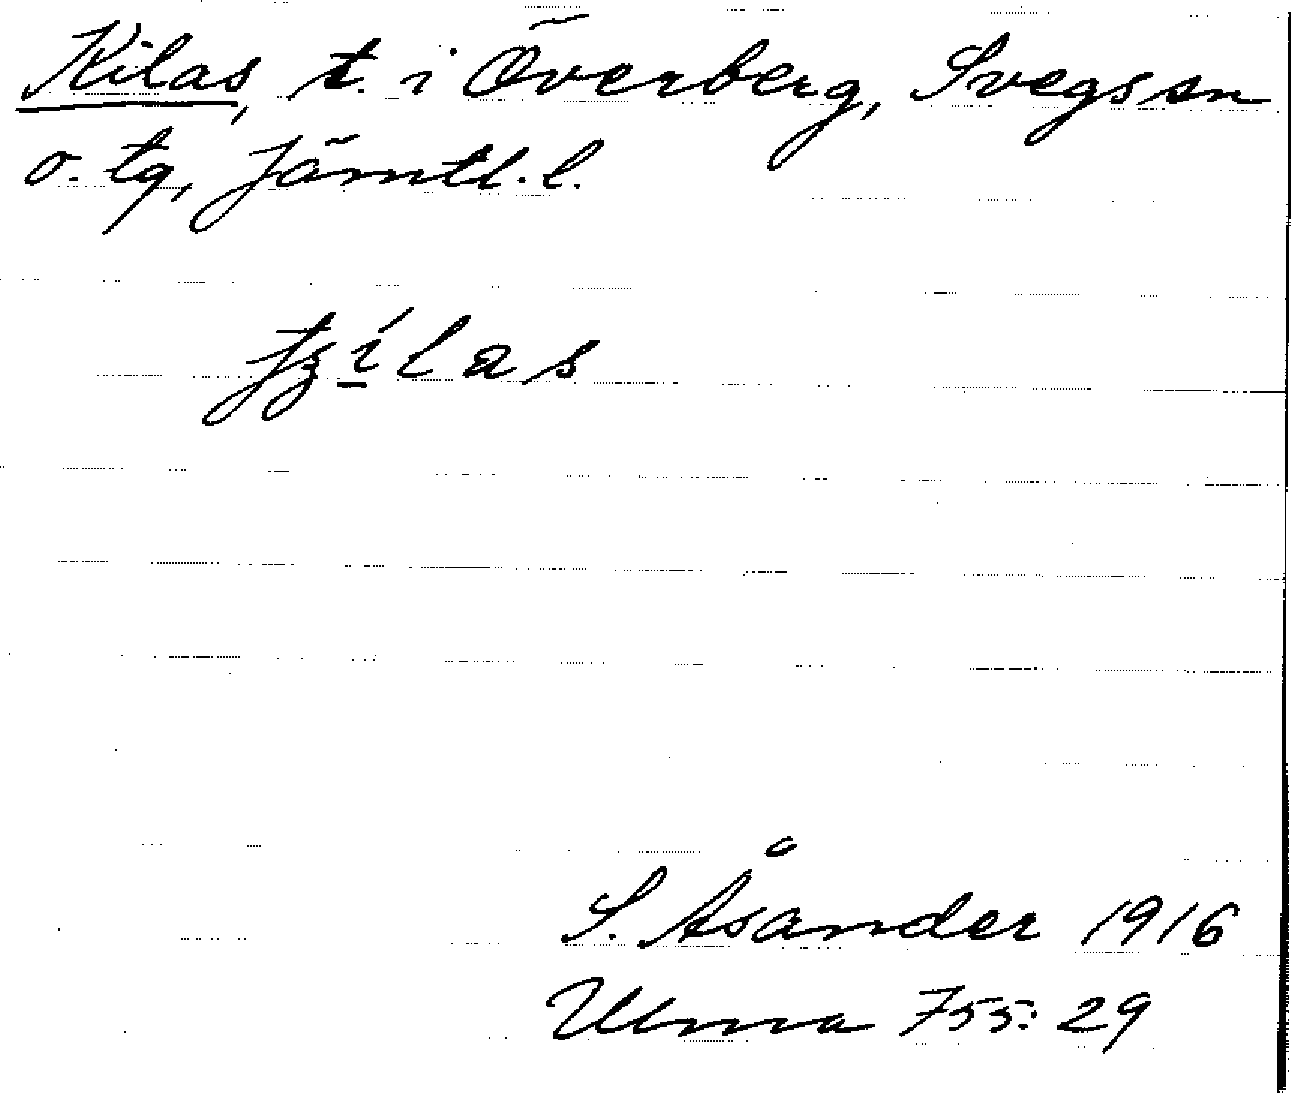 Kilas, t. i Överberg, Svegs sn
o. tg, Jämtl. l.
S. Åsander 1916
Ulma 755: 29